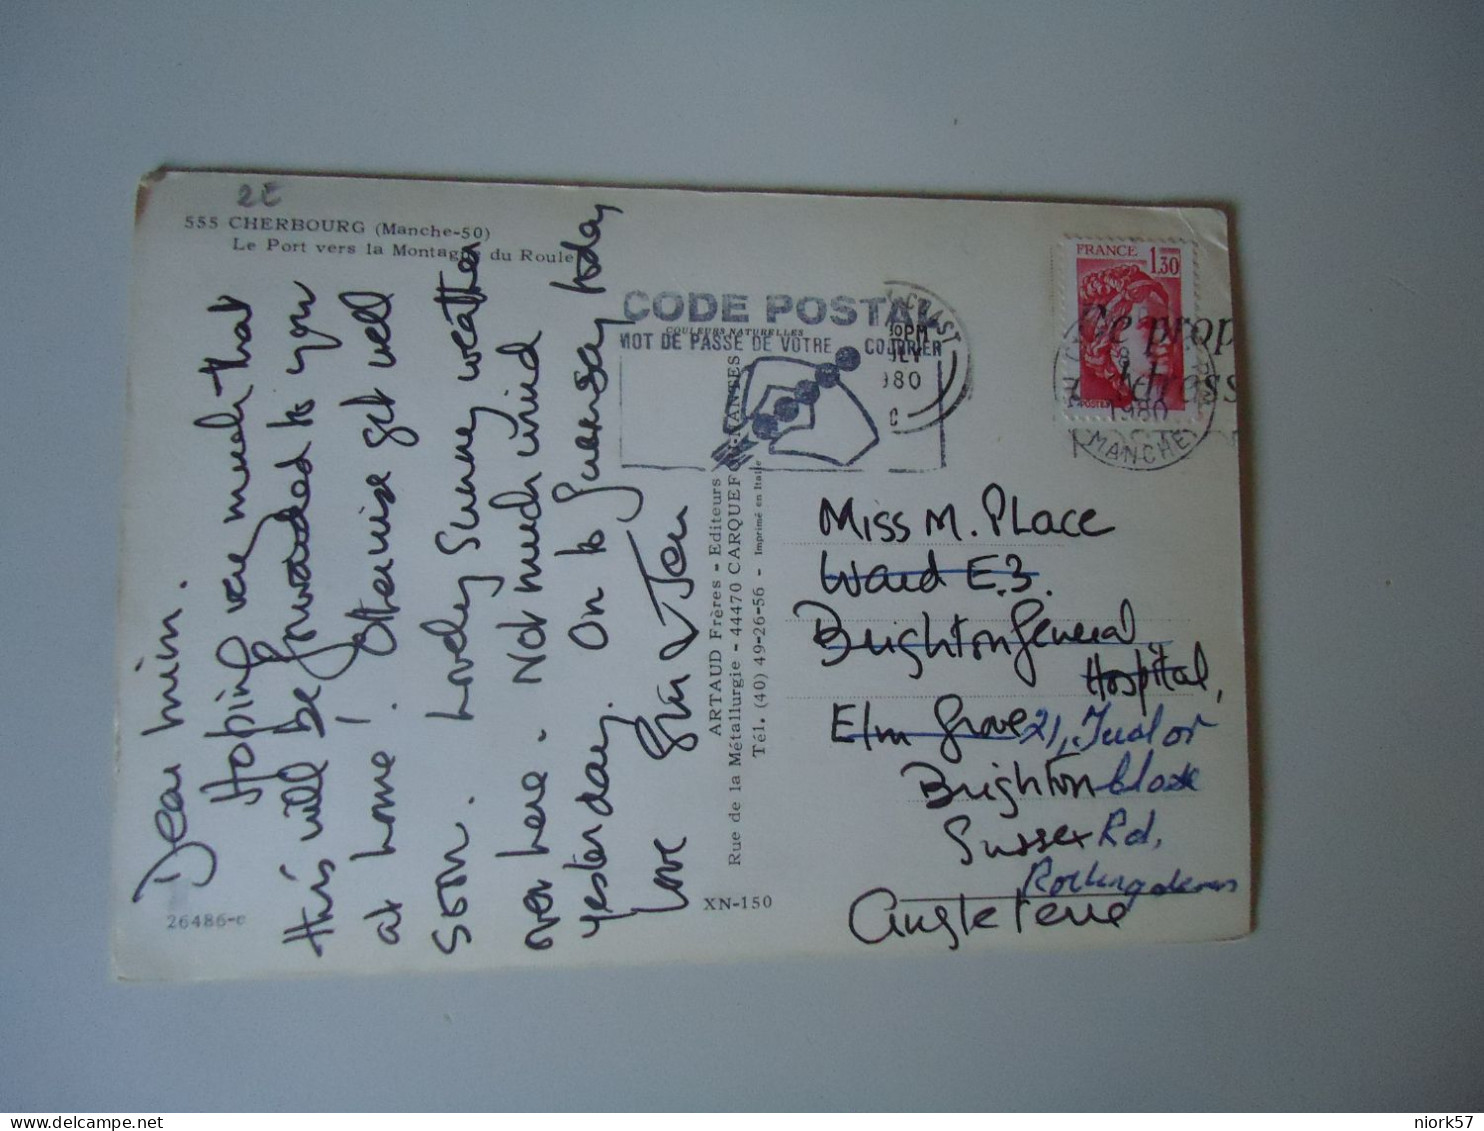 2E
555 CHERBOURG (Manche-50)
Le Port vers la Montagne du Roule
Dear Mim.
Hoping very much that
this will be forwarded to you
at home! Otherwise get well
soon. Lovely Sunny weather
over here. Not much wind
yesterday. On to Guernsey today
Love
26486-c
XN-150
ARTAUD Frères - Editeurs
Rue de la Métallurgie - 44470 CARQUEFOU-NANTES
Tél. (40) 49-26-56 - Imprimé en Italie
COULEURS NATURELLES
CODE POSTAL
MOT DE PASSE DE VOTRE COURRIER
30PM
1980
FRANCE 1,30
1980
MANCHE
Miss M. Place
Ward E.3.
Brighton General
Hospital,
Elm Grove 21, Tudor
Brighton Close
Sussex Rd,
Angleterre
niork57